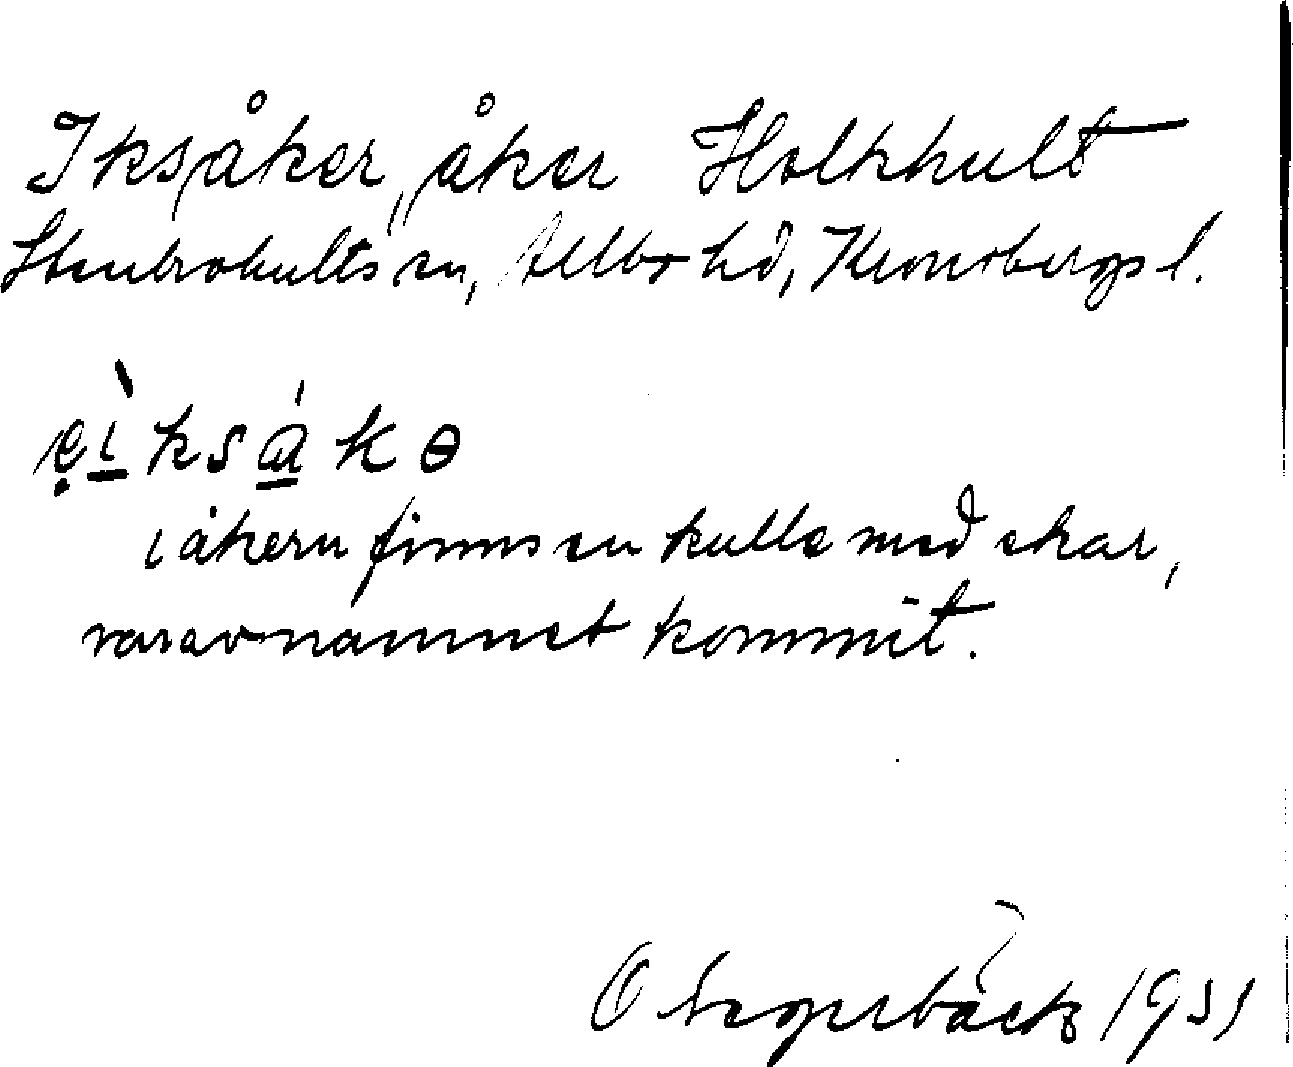 Iksåker, åker Holkhult
Stenbrohults sn, Allbo hd, Kronobergs l.
ei̱ksåkɵ
i åkern finns en kulle med ekar,
varav namnet kommit.
O Segerbäck 1931